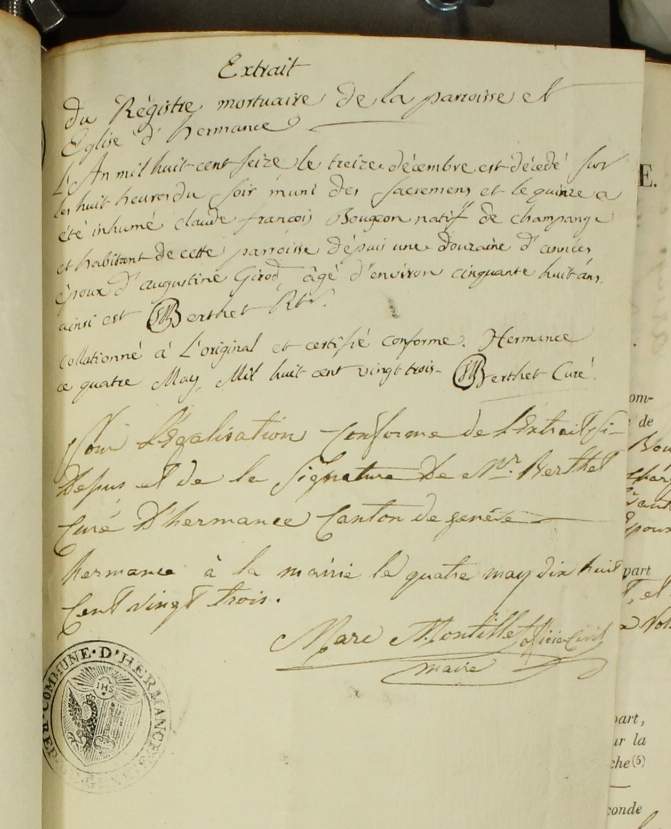 Extrait
du Régistre mortuaire de la parroisse et
Eglise d'hermance
L'An mil huit cent seize le treize décembre est décédé sur
les huit heures du soir muni des sacremens et le quinze a
été inhumé claude françois Bougeon natif de champange
et habitant de cette parroisse dépuis une douzaine d'années
époux d'augustine Girod âgé d'environ cinquante huit ans.
ainsi est Berthet Rtr.
Collationné à L'original et certifié conforme. Hermance
ce quatre May, Mil huit cent vingt trois. Berthet Curé.
Pour Légalisation Conforme de L'Extrait Ci-
Depus et de la Signature De Mr. Berthet
Curé D'hermance Canton de genêve
hermance à la mairie le quatre may dix huit
Cent vingt trois.
Marc Montillet officier Civil
maire
COMMUNE·D'HERMANCE
IHS
E.
om-
de
part
et
part,
ur la
che(5)
conde